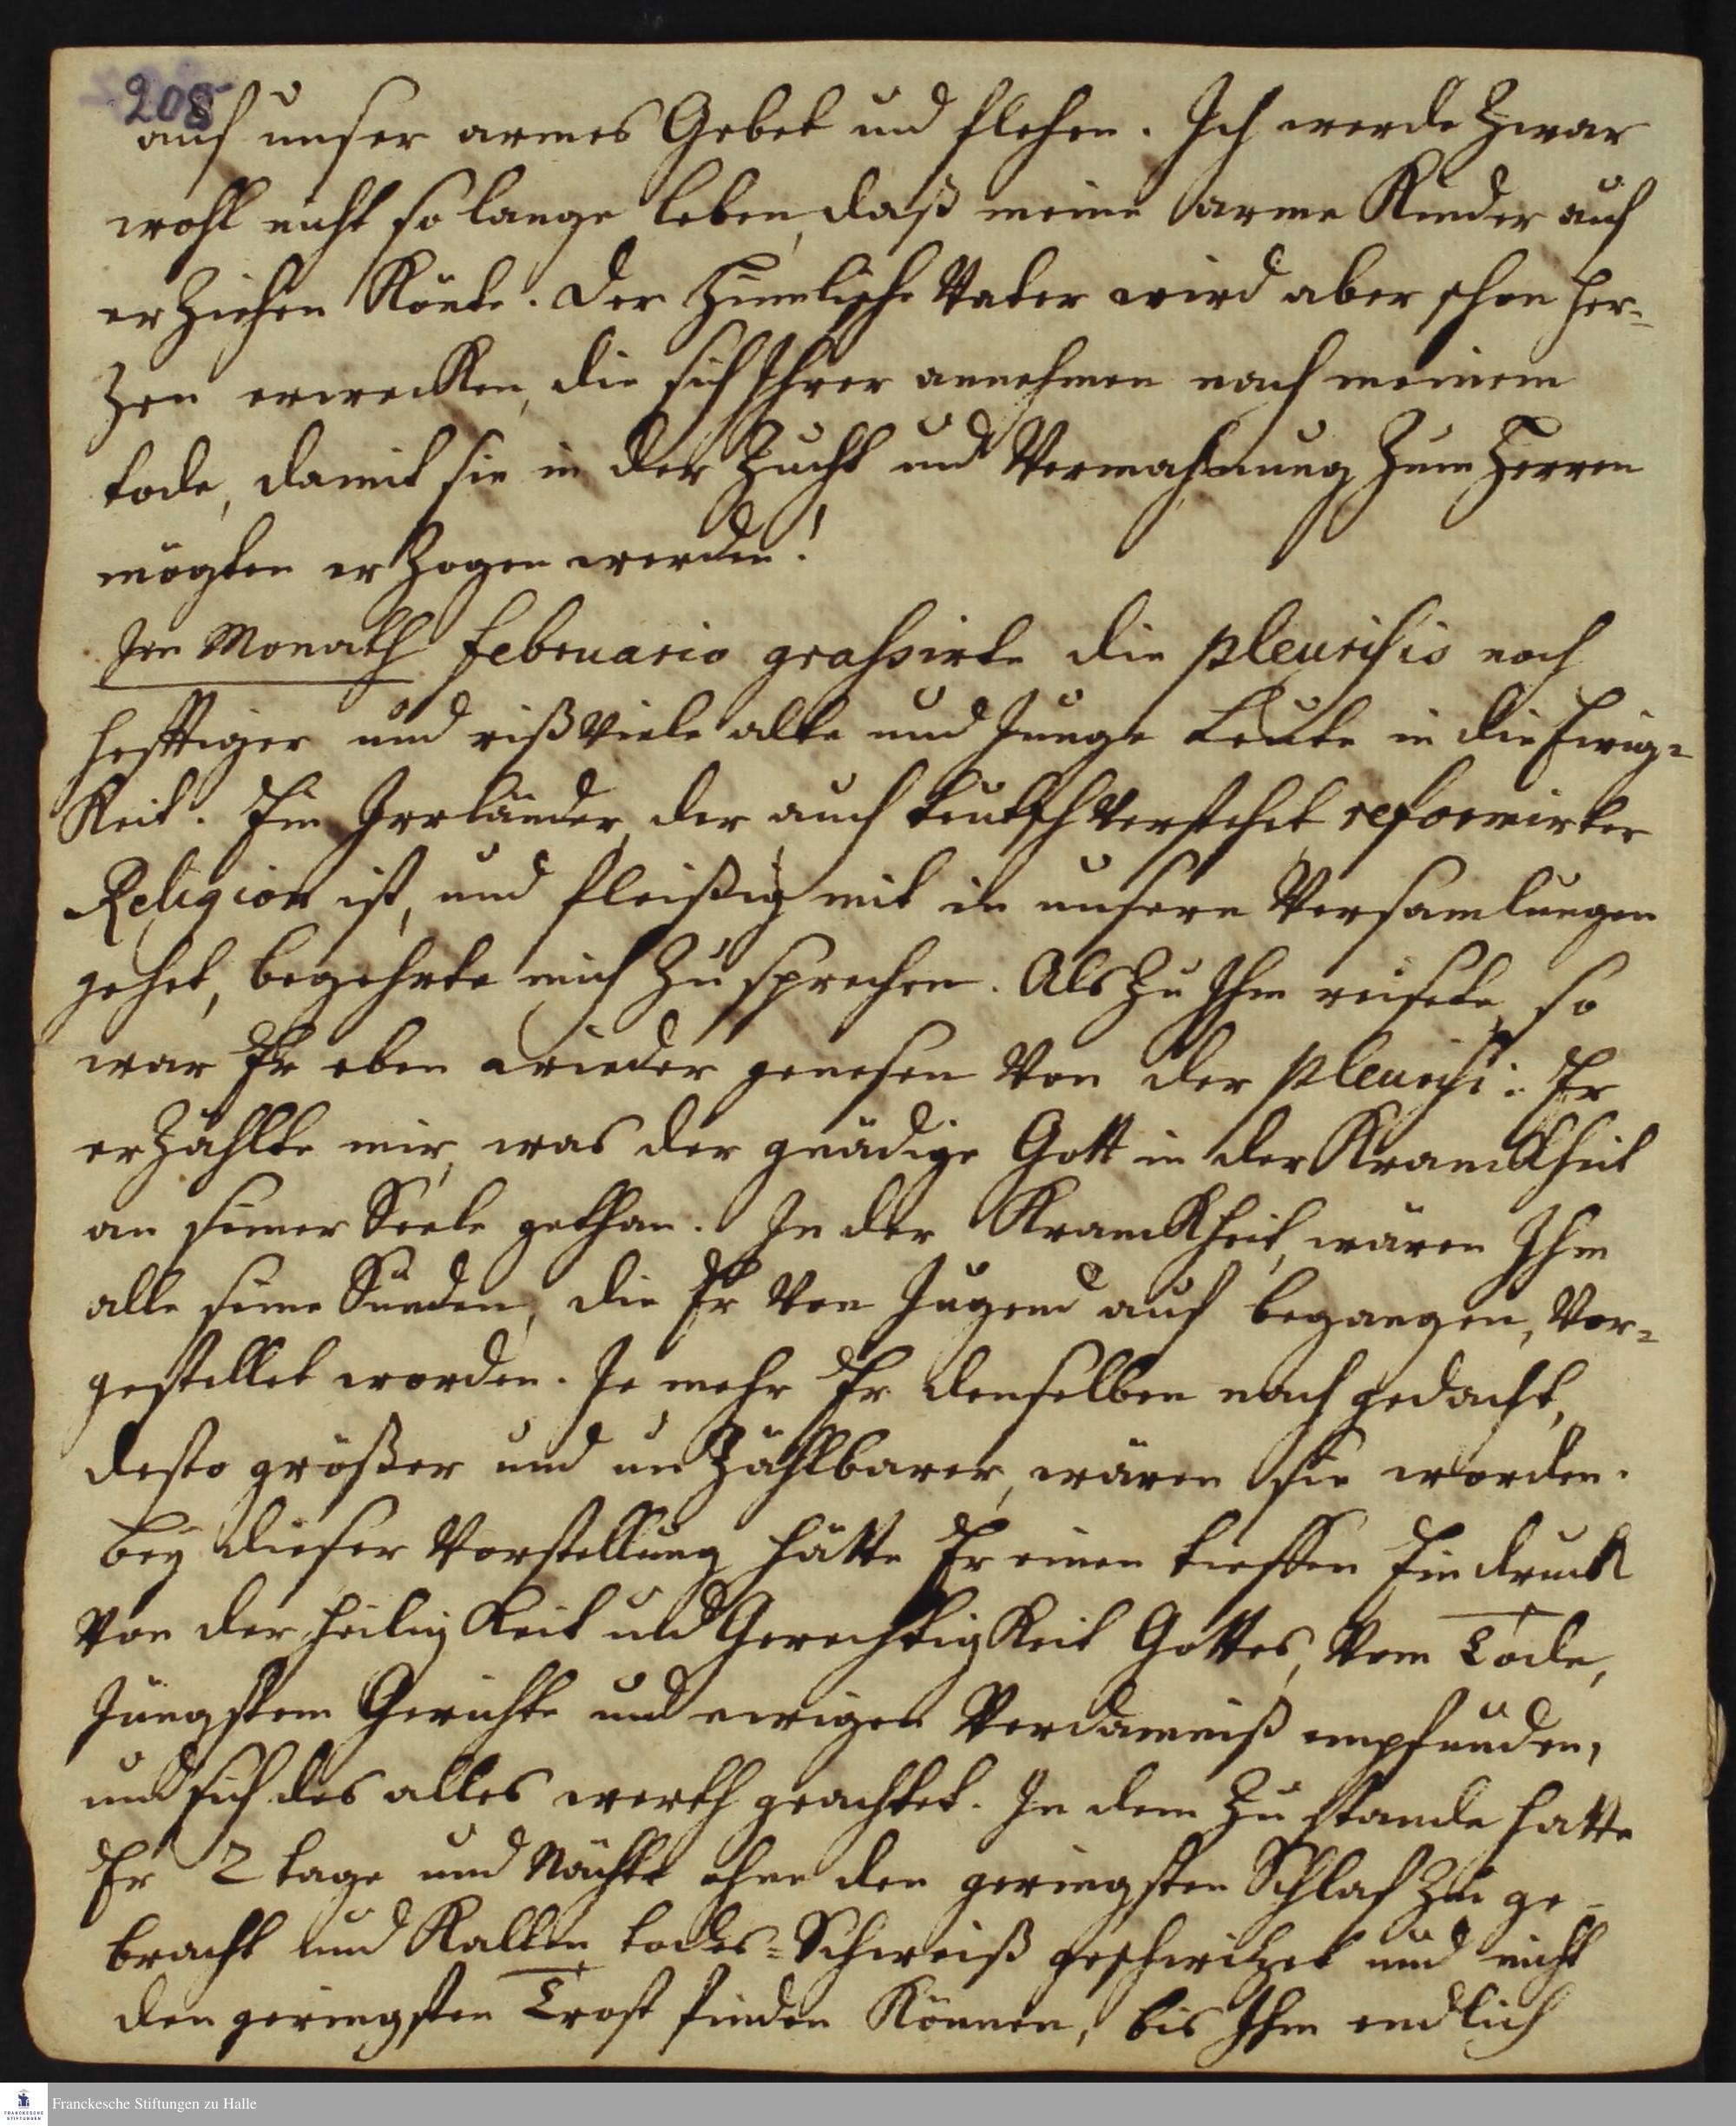 208
auf unser armes Gebet und flehen. Ich werde zwar
wohl nicht so lange leben, daß meine arme Kinder auf
erziehen könte. Der Himmlische Vater wird aber schon Her-
zen erwecken, die sich Ihrer annehmen nach meinem
tode, damit sie in der Zucht und Vermahnung zum Herren
mögten erzogen werden!
Im Monath Februario grassirte die pleurisis noch
hefftiger und riß viele alte und Junge Leute in die Ewig-
keit. Ein Irrländer, der auch teutsch verstehet reformirter
Religion ist, und fleißig mit in unsere Versamlungen
gehet, begehrte mich zu sprechen. Als zu Ihm reisete, so
war Er eben wieder genesen von der pleurisi. Er
erzählte mir, was der gnädige Gott in der Kranckheit
an seiner Seele gethan. In der Kranckheit, wären Ihm
alle seine Sünden, die Er von Jugend auf begangen, vor-
gestellet worden. Je mehr Er denselben nach gedacht,
desto größer und unzählbarer, wären sie worden.
bey dieser Vorstellung hätte Er einen tieffen Eindruck
von der heiligkeit und Gerechtigkeit Gottes, vom Tode,
Jüngstem Gerichte und ewigen Verdamniß empfunden,
und sich des alles werth geachtet. In dem Zustande hatte
Er 2 tage und Nächte ohne den geringsten Schlaf zu ge-
bracht und Kalten todes-Schweiß geschwitzet und nicht
den geringsten Trost finden können, bis Ihm endlich
Franckesche Stiftungen zu Halle
FRANCKESCHE
STIFTUNGEN